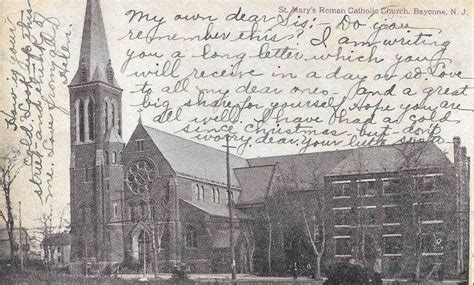 St. Mary's Roman Catholic Church, Bayonne, N. J.
My own dear Sis:- Do you
remember this? I am writing
you a long letter which you
will receive in a day or so. Love
to all my dear ones. and a great
big share for yourself. Hope you are
all well. I have had a cold
since Christmas. but don't
worry, dear. Your little
Love
from all
Helen